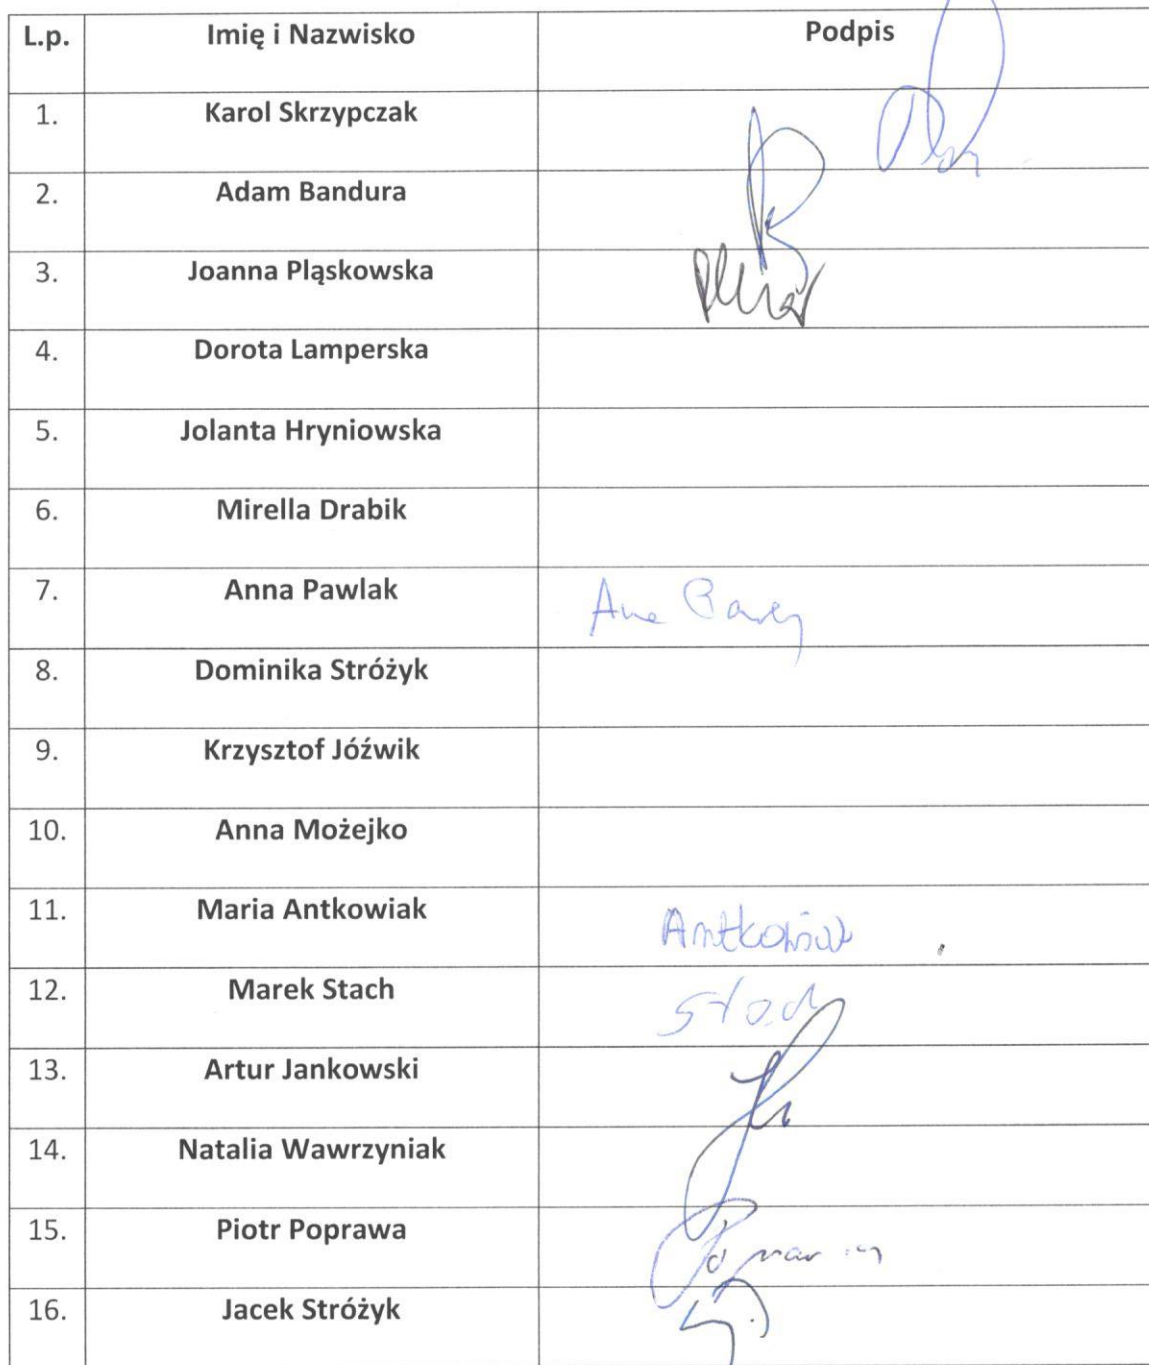 L.p. Imię i Nazwisko Podpis
1. Karol Skrzypczak
2. Adam Bandura
3. Joanna Pląskowska
4. Dorota Lamperska
5. Jolanta Hryniowska
6. Mirella Drabik
7. Anna Pawlak
8. Dominika Stróżyk
9. Krzysztof Jóźwik
10. Anna Możejko
11. Maria Antkowiak Antkowiak
12. Marek Stach Stach
13. Artur Jankowski
14. Natalia Wawrzyniak
15. Piotr Poprawa
16. Jacek Stróżyk